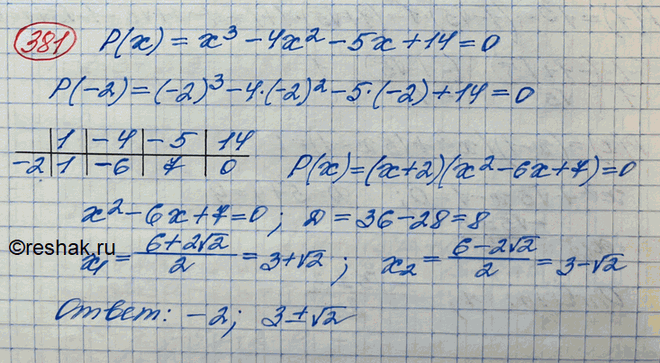 381 P(x) = x³ - 4x² - 5x + 14 = 0
P(-2) = (-2)³ - 4·(-2)² - 5·(-2) + 14 = 0
1 | -4 | -5 | 14
-2 | 1 | -6 | 7 | 0
P(x) = (x+2)(x² - 6x + 7) = 0
x² - 6x + 7 = 0; D = 36 - 28 = 8
©reshak.ru
x₁ = (6+2√2)/2 = 3+√2; x₂ = (6-2√2)/2 = 3-√2
Ответ: -2; 3±√2